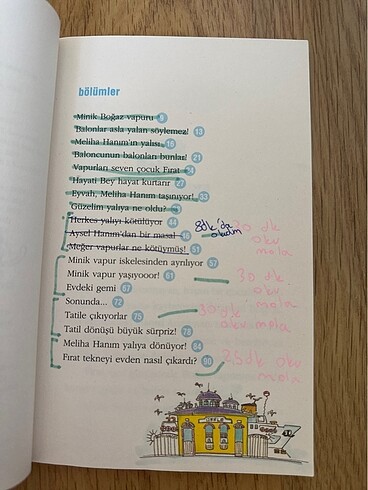 bölümler
Minik Boğaz vapuru
Balonlar asla yalan söylemez! 13
Meliha Hanım'ın yalısı 19
Baloncunun balonları bunlar! 21
Vapurları seven çocuk Fırat
Hayati Bey hayat kurtarır 27
Eyvah, Meliha Hanım taşınıyor! 33
Güzelim yalıya ne oldu?
Herkes yalıyı kötülüyor 44
Aysel Hanım'dan bir masal
Meğer vapurlar ne kötüymüş! 51
80k'da
30 dk
oku
mola
Minik vapur iskelesinden ayrılıyor 57
Minik vapur yaşıyooor! 61
Evdeki gemi 67
30 dk
oku
mola
Sonunda... 72
Tatile çıkıyorlar 75
Tatil dönüşü büyük sürpriz! 78
30 dk
oku mola
Meliha Hanım yalıya dönüyor! 84
Fırat tekneyi evden nasıl çıkardı? 90
25 dk oku
mola